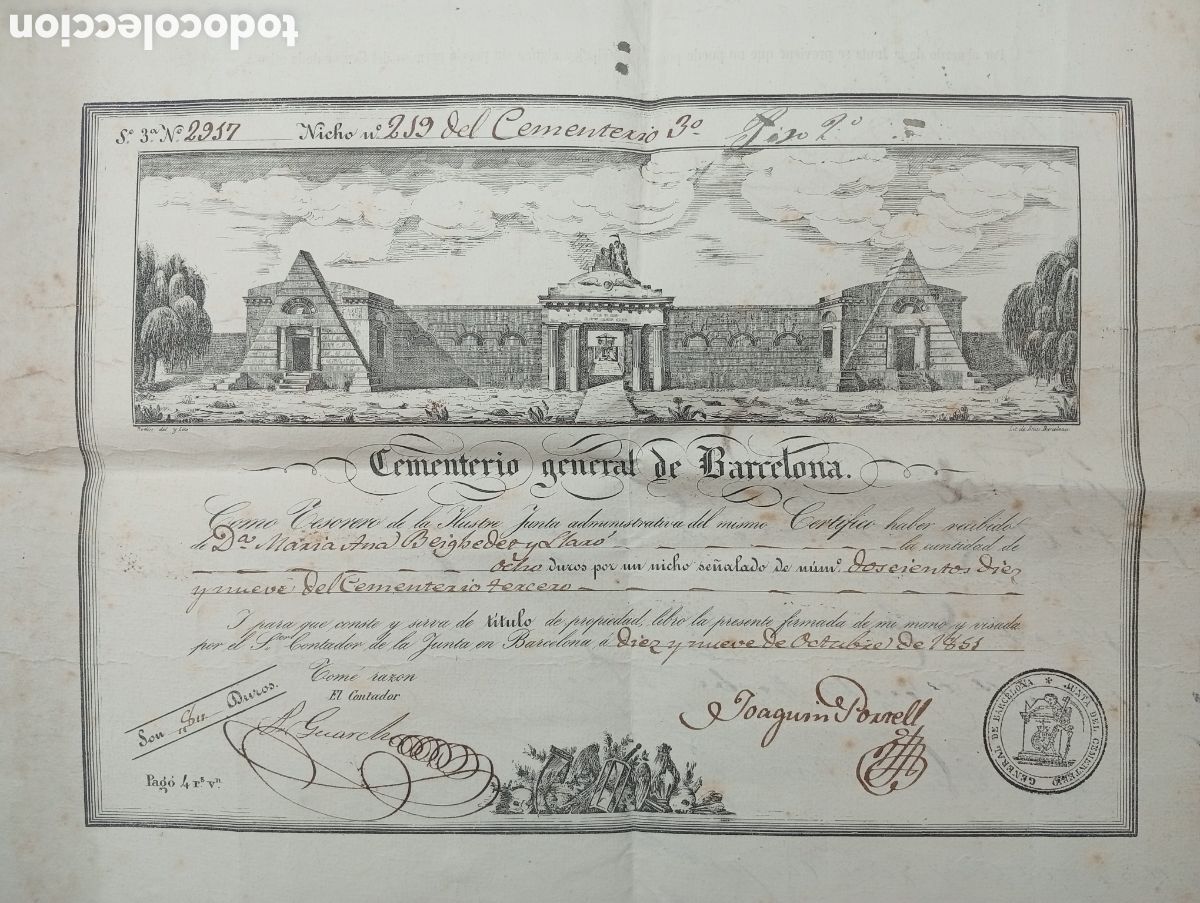 todocoleccion
Sº 3ª Nº 2917 Nicho nº 219 del Cementerio 3º Piso 2º
Cementerio general de Barcelona.
Como Tesorero de la Ilustre Junta administrativa del mismo Certifico haber recibido
de Dª Maria Ana la cantidad de
ocho duros por un nicho señalado de númº doscientos diez
y nueve del Cementerio tercero
I para que conste y serva de título de propiedad, libro la presente firmada de mi mano y visada
por el Sor Contador de la Junta en Barcelona á diez y nueve de Octubre de 1851
Tomé razon
El Contador
Son Duros.
Guarch
Joaquin Borrell
Pagó 4 rs vn
JUNTA DEL CEMENTERIO GENERAL DE BARCELONA